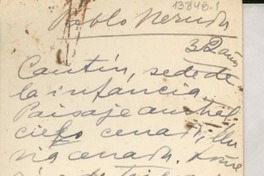 13848-1
Pablo Neruda
32 años
Cautín, sede de
la infancia
Paisaje austral
cielo cenad, llu
via cenada.